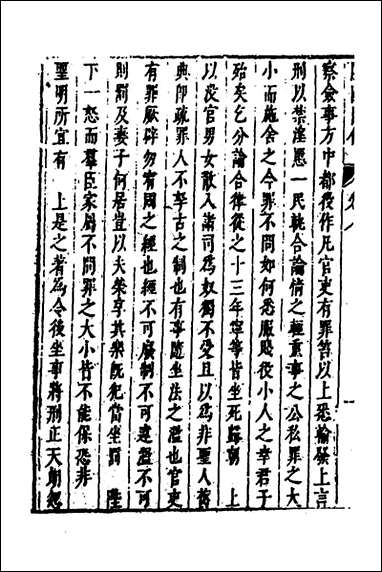 察僉事方中都役作凡官吏有罪笞以上悉輸發上言
刑以禁淫慝一民軌合論情之輕重事之公私罪之大
小而施舍之今罪不問如何悉服賤役小人之幸君子
殆矣乞分論合律從之十三年寧等皆坐死歸朝　上
以没官男女散入諸司爲奴獨不受且以爲非聖人舊
典卽疏罪人不孥古之制也有事隨坐法之濫也官吏
有罪厥辟勿宥國之經也經不可廢制不可違濫不可
則罰及妻子何居豈以夫榮享其樂旣犯當坐罰　陛
下一怒而羣臣家屬不問罪之大小皆不能保恐非
聖明所宜有　上是之著爲令後坐事將刑正天朝怨